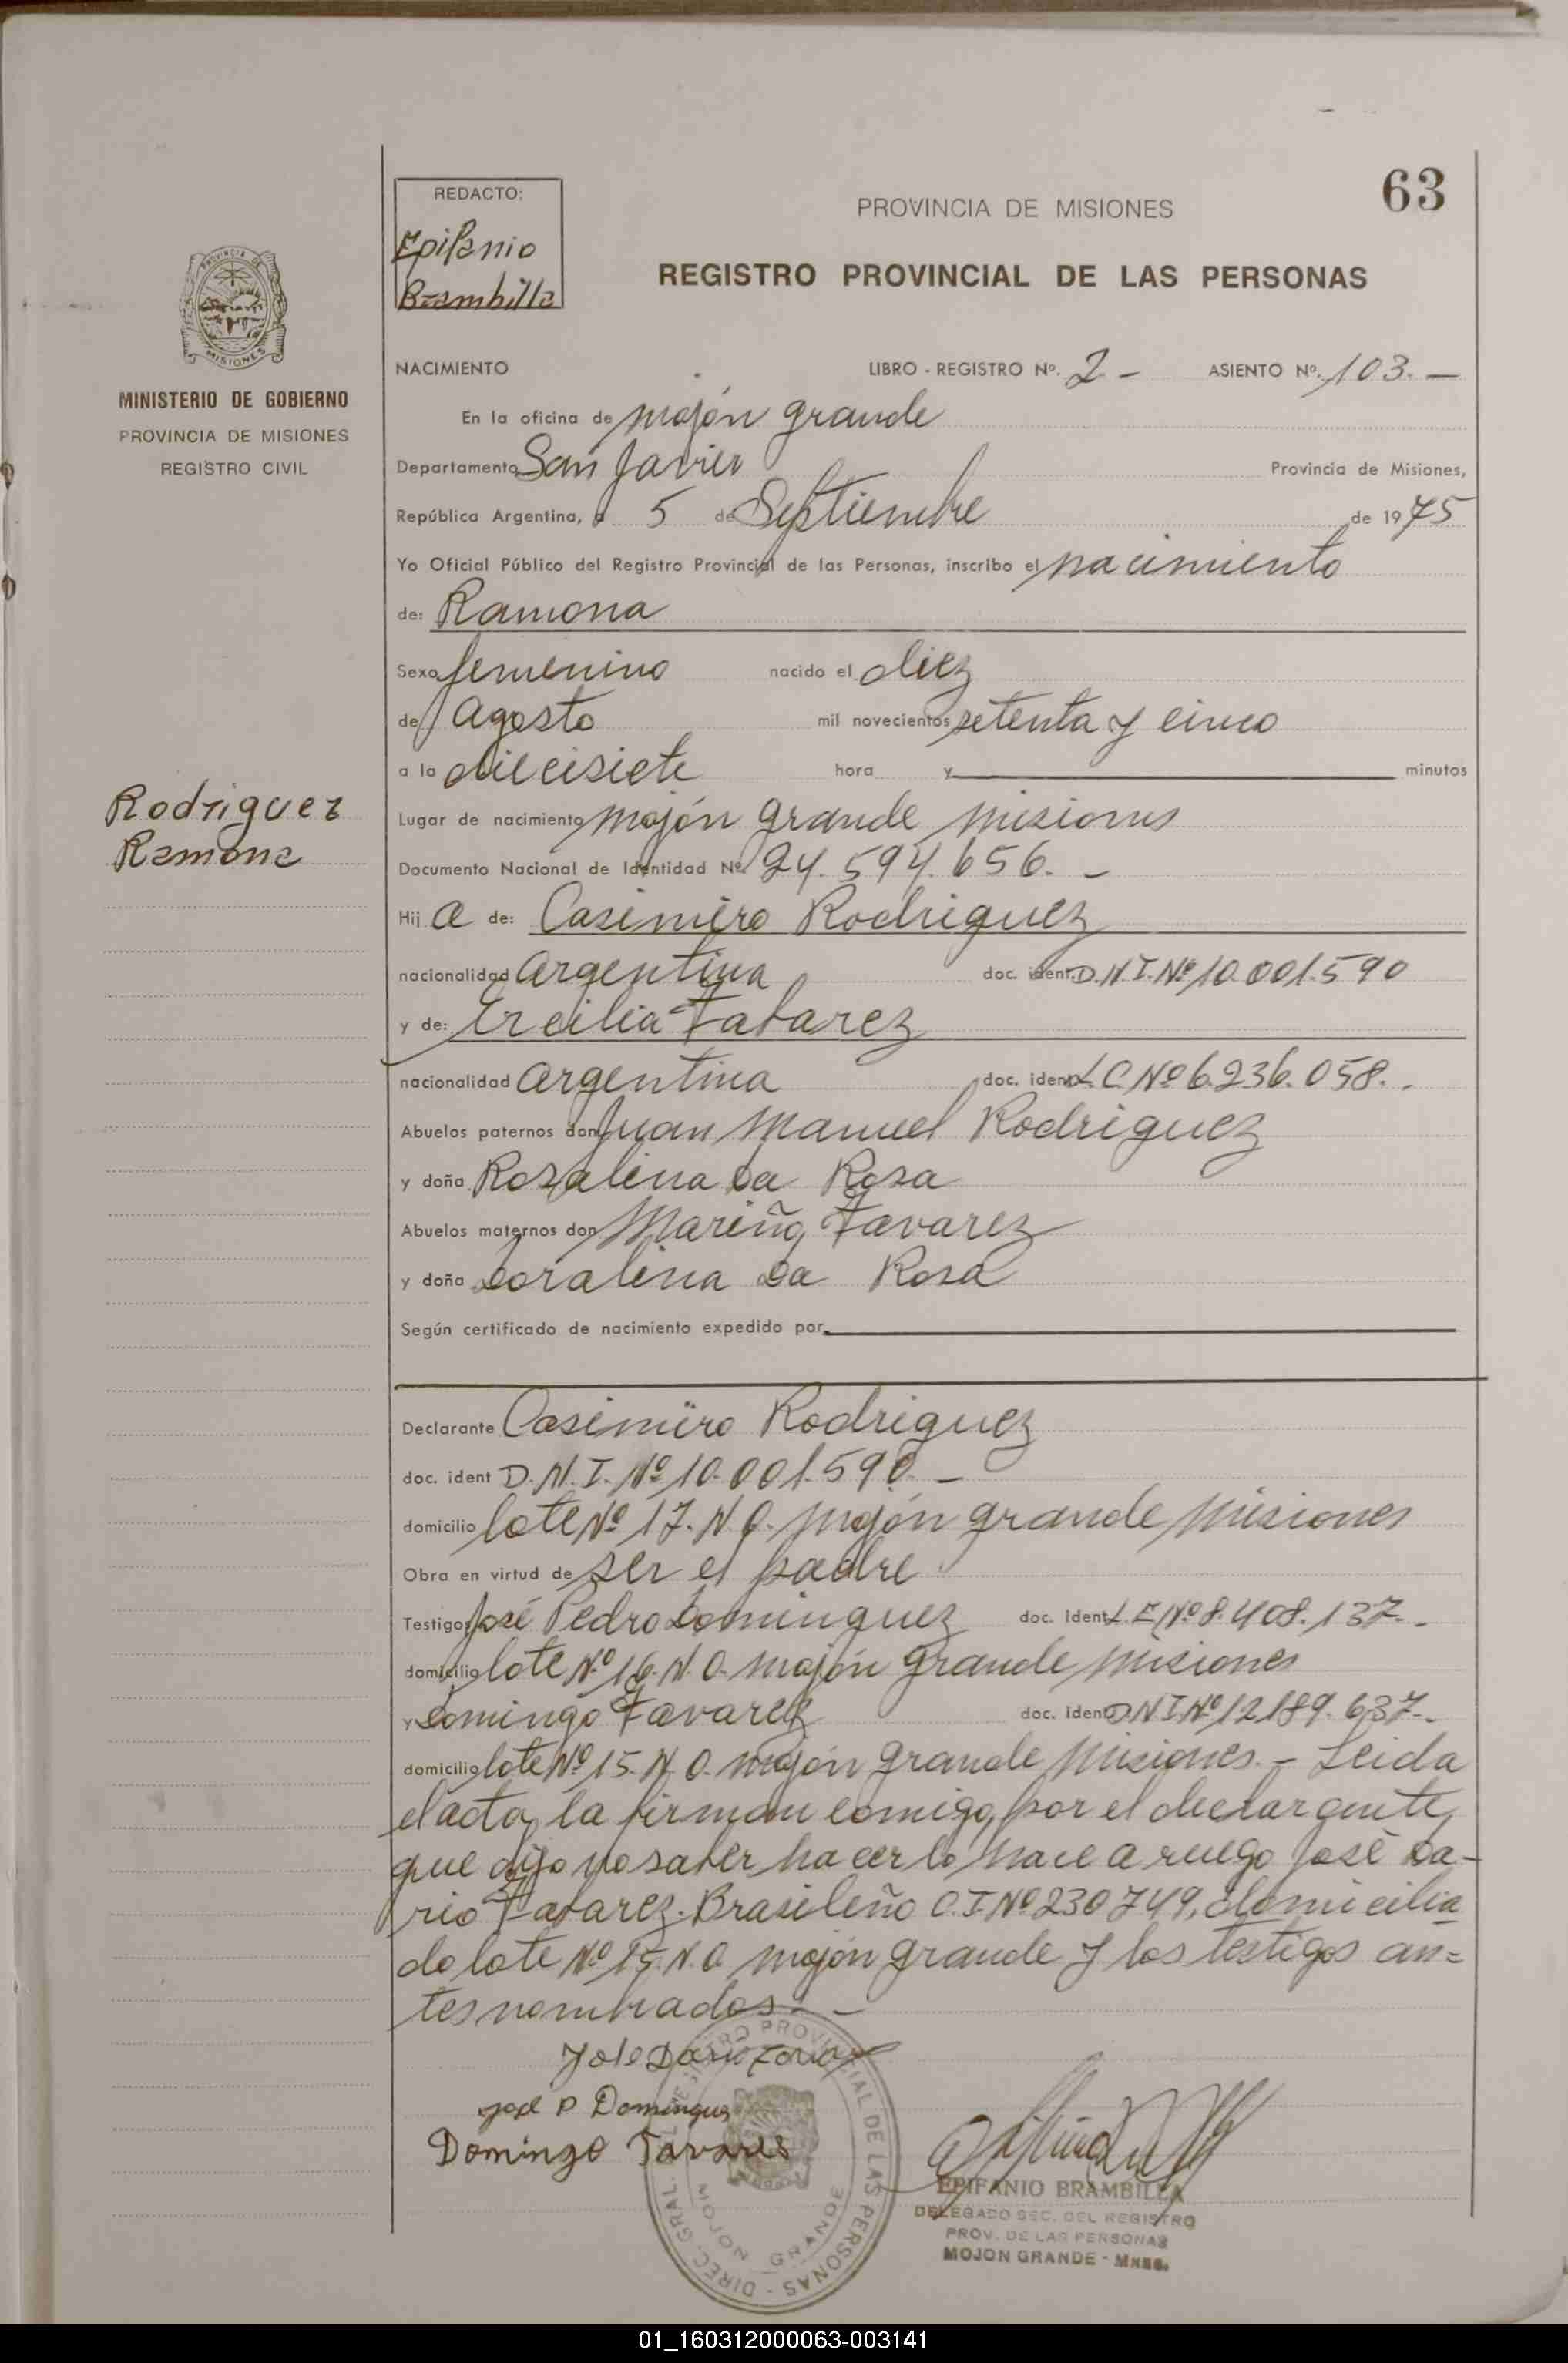 63
REDACTO:
Epifanio
Brambilla
PROVINCIA DE MISIONES
REGISTRO PROVINCIAL DE LAS PERSONAS
PROVINCIA DE
MISIONES
MINISTERIO DE GOBIERNO
PROVINCIA DE MISIONES
REGISTRO CIVIL
Rodriguez
Ramona
NACIMIENTO LIBRO - REGISTRO Nº. 2 - ASIENTO Nº. 103. —
En la oficina de mojón grande
Departamento San Javier Provincia de Misiones,
República Argentina, a 5 de Septiembre de 1975
Yo Oficial Público del Registro Provincial de las Personas, inscribo el nacimiento
de: Ramona
Sexo femenino nacido el diez
de Agosto mil novecientos setenta y cinco
a la diecisiete hora y minutos
Lugar de nacimiento mojón grande misiones
Documento Nacional de Identidad Nº 24.594.656. -
Hij a de: Casimiro Rodriguez
nacionalidad argentina doc. ident. D.N.I. Nº 10.001.590
y de: Ercilia Tabarez
nacionalidad argentina doc. ident L C Nº 6.236.058.
Abuelos paternos don Juan Manuel Rodriguez
y doña Rosalina Da Rosa
Abuelos maternos don Mariño Tavarez
y doña Doralina Da Rosa
Según certificado de nacimiento expedido por
Declarante Casimiro Rodriguez
doc. ident D.N.I. Nº 10.001.590. -
domicilio lote Nº 17. N.O. mojón grande misiones
Obra en virtud de ser el padre
Testigos José Pedro Dominguez doc. ident L.E. Nº 8.408.137.-
domicilio lote Nº 16. N.O. mojón grande misiones
y Domingo Tavarez doc. ident D N I. Nº 12.189.637.-
domicilio lote Nº 15. N.O. mojón grande misiones. - Leida
el acta, la firman comigo, por el declarante,
que dijo no saber hacerlo hace a ruego José Da-
rio Tabarez. Brasileño C.I. Nº 230749, domicilia
do lote Nº 15. N.O mojón grande y los testigos an=
tes nombrados. -
José P Dominguez
Domingo Tavares
DIREC. GRAL. REGISTRO PROVINCIAL DE LAS PERSONAS -
MOJON GRANDE
EPIFANIO BRAMBILLA
DELEGADO SEC. DEL REGISTRO
PROV. DE LAS PERSONAS
MOJON GRANDE - Mnes.
01_160312000063-003141